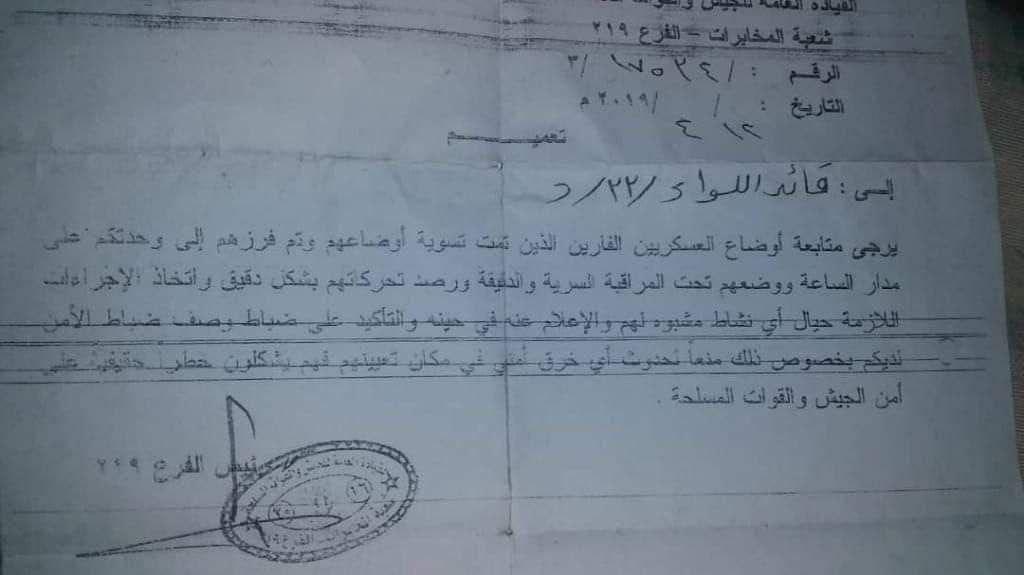 القيادة العامة للجيش
شعبة المخابرات - الفرع ٢١٩
الرقم : / ١٧٥٣٤ /٣
التاريخ : / / ٢٠١٩ م
١٢ ٤
تعميم
إلى : قائد اللواء /٢٢/ د
يرجى متابعة أوضاع العسكريين الفارين الذين تمت تسوية أوضاعهم وتم فرزهم إلى وحدتكم على
مدار الساعة ووضعهم تحت المراقبة السرية والدقيقة ورصد تحركاتهم بشكل دقيق واتخاذ الإجراءات
اللازمة حيال أي نشاط مشبوه لهم والإعلام عنه في حينه والتأكيد على ضباط وصف ضباط الأمن
لديكم بخصوص ذلك منعاً لحدوث أي خرق أمني في مكان تعيينهم فهم يشكلون خطراً حقيقياً على
أمن الجيش والقوات المسلحة .
رئيس الفرع ٢١٩